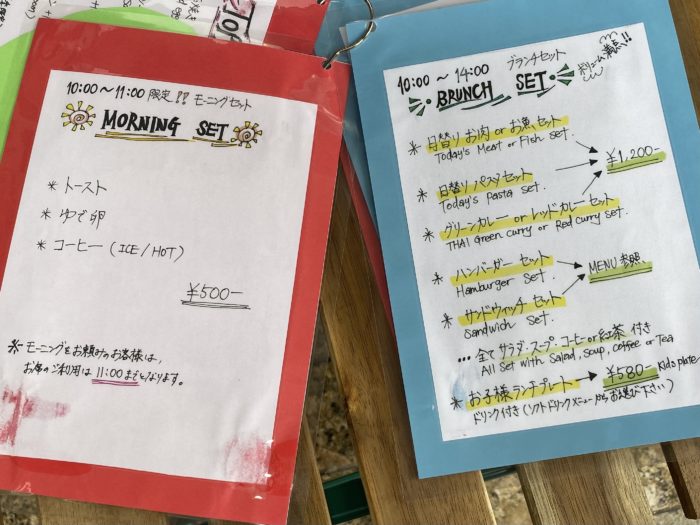 10:00～11:00 限定!! モーニングセット
MORNING SET
* トースト
* ゆで卵
* コーヒー (ICE/HOT)
¥500-
※ モーニングをお頼みのお客様は、
お席のご利用は 11:00までとなります。
10:00～14:00 ブランチセット
BRUNCH SET
ボリューム満点!!
* 日替り お肉 or お魚 セット
Today's Meat or Fish set.
* 日替り パスタ セット
Today's pasta set.
¥1,200-
* グリーンカレー or レッドカレー セット
THAI Green curry or Red curry set.
* ハンバーガー セット
Hamburger set.
MENU 参照
* サンドウィッチ セット
Sandwich set.
… 全て サラダ・スープ・コーヒー or 紅茶 付き
All set with Salad, soup, coffee or Tea
* お子様ランチプレート → ¥580- Kids plate
ドリンク付き (ソフトドリンクメニューからお選び下さい)